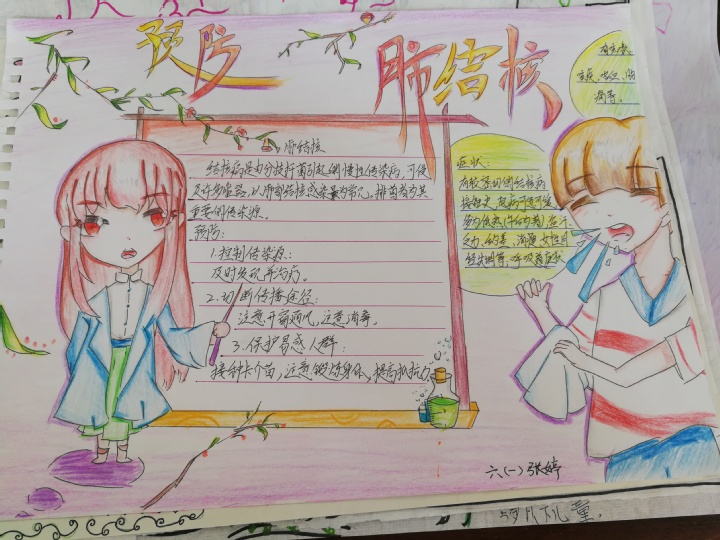 预防
肺结核
肺结核
结核病是由分枝杆菌引起的慢性传染病,可侵
及许多脏器,以肺部结核感染最为常见,排菌者为其
重要的传染源。
预防:
1.控制传染源:
及时发现并治疗。
2.切断传播途径:
注意开窗通风,注意消毒。
3.保护易感人群:
接种卡介苗,注意锻炼身体,提高抵抗力
症状:
有较密切的结核病
接触史,起病可急可缓,
多为低热(午后为著)盗汗、
乏力、纳差、消瘦、女性月
经失调等,呼吸道症状
有咳嗽、
咳痰、咯血、胸
痛等。
六(一)张婷
5岁以下儿童。